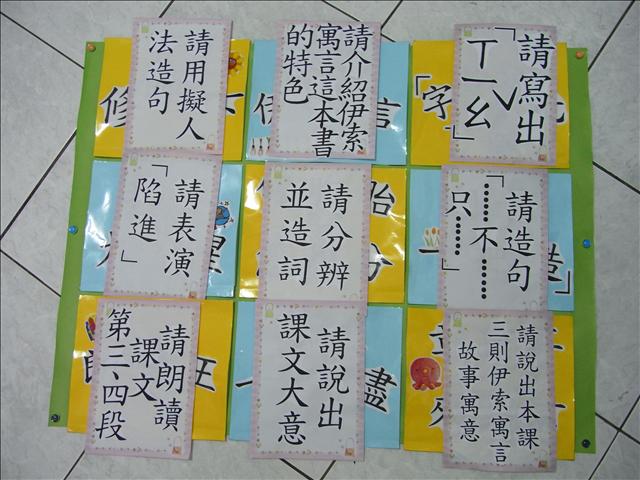 請用擬人
法造句
請介紹伊索
寓言這本書
的特色
請寫出
「ㄒㄧㄠˇ」
請表演
「陷進」
請分辨
並造詞
請造句
「……不……
只……」
請朗讀
課文
第三、四段
請說出
課文大意
請說出本課
三則伊索寓言
故事寓意